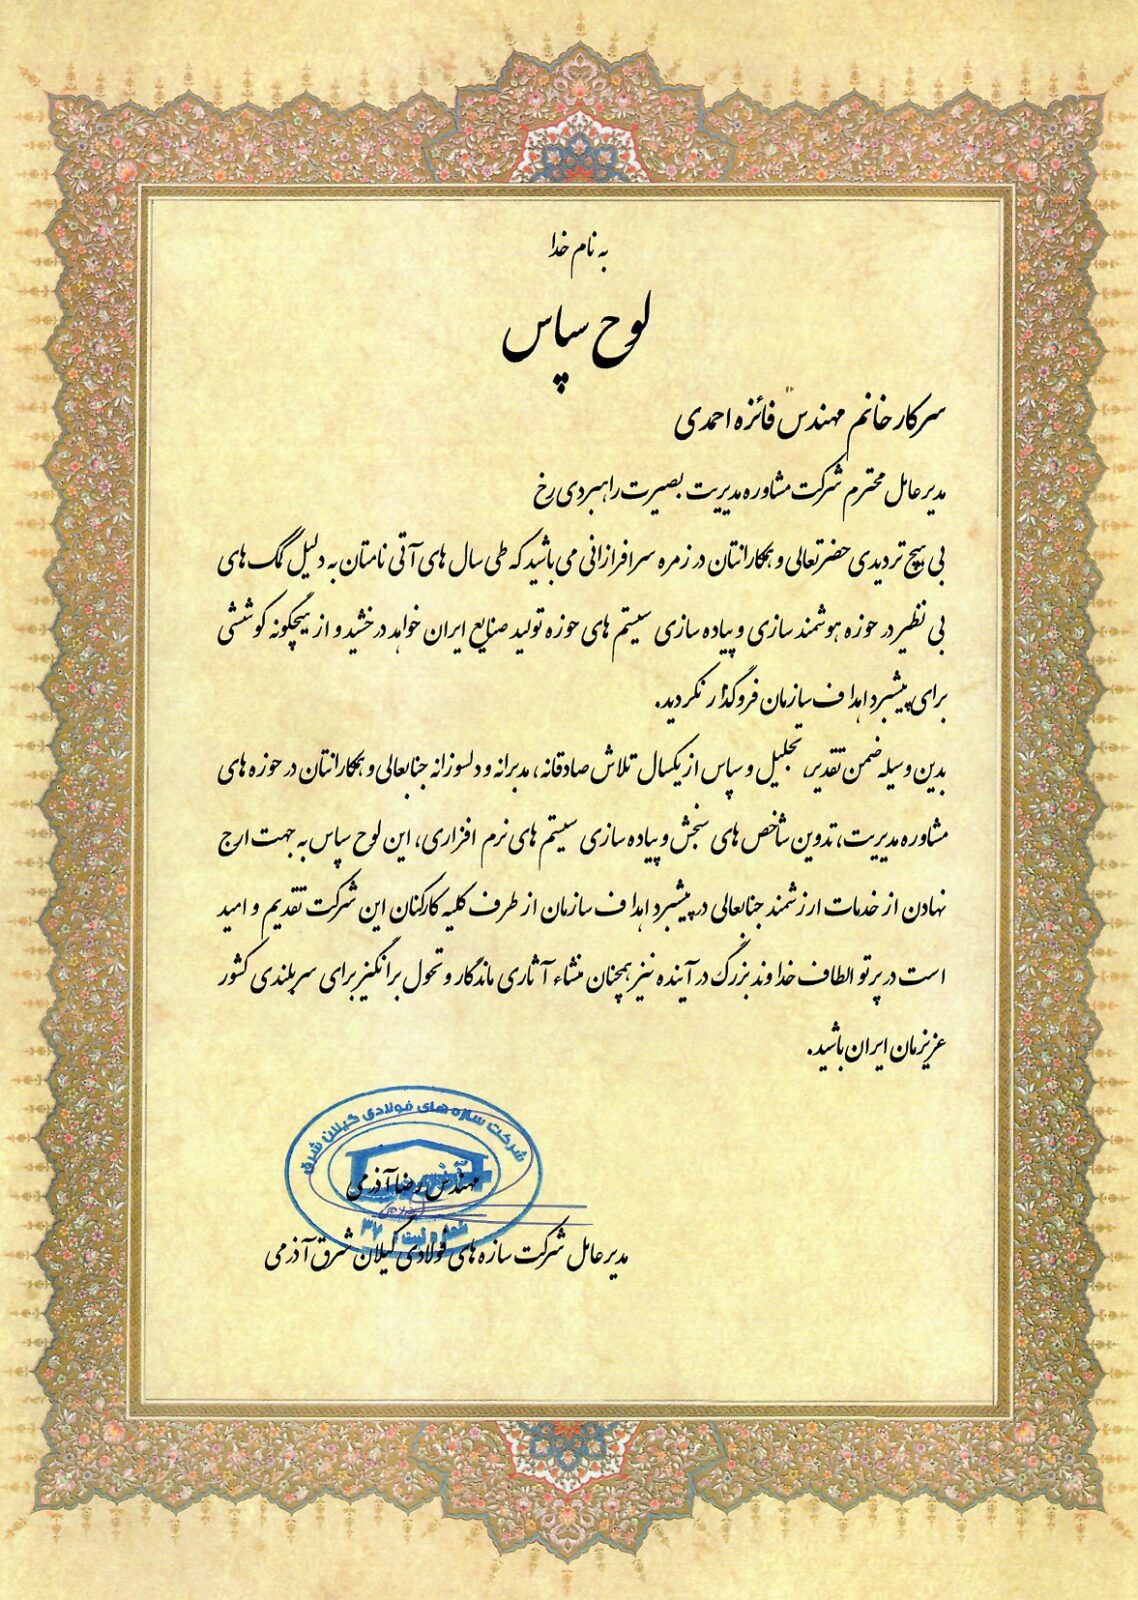 به نام خدا
لوح سپاس
سرکار خانم مهندس فائزه احمدی
مدیرعامل محترم شرکت مشاوره مدیریت بصیرت راهبردی رخ
بی هیچ تردیدی حضرتعالی و همکارانتان در زمره سرافرازانی می باشید که طی سال های آتی نامتان به دلیل کمک های
بی نظیر در حوزه هوشمند سازی و پیاده سازی سیستم های حوزه تولید صنایع ایران خواهد درخشید و از هیچگونه کوششی
برای پیشبرد اهداف سازمان فروگذار نکردید.
بدین وسیله ضمن تقدیر، تجلیل و سپاس از یکسال تلاش صادقانه، مدبرانه و دلسوزانه جنابعالی و همکارانتان در حوزه های
مشاوره مدیریت، تدوین شاخص های سنجش و پیاده سازی سیستم های نرم افزاری، این لوح سپاس به جهت ارج
نهادن از خدمات ارزشمند جنابعالی در پیشبرد اهداف سازمان از طرف کلیه کارکنان این شرکت تقدیم و امید
است در پرتو الطاف خداوند بزرگ در آینده نیز همچنان منشاء آثاری ماندگار و تحول برانگیز برای سربلندی کشور
عزیزمان ایران باشید.
شرکت سازه های فولادی گیلان شرق
مهندس رضا آذرمی
مدیرعامل شرکت سازه های فولادی گیلان شرق آذرمی